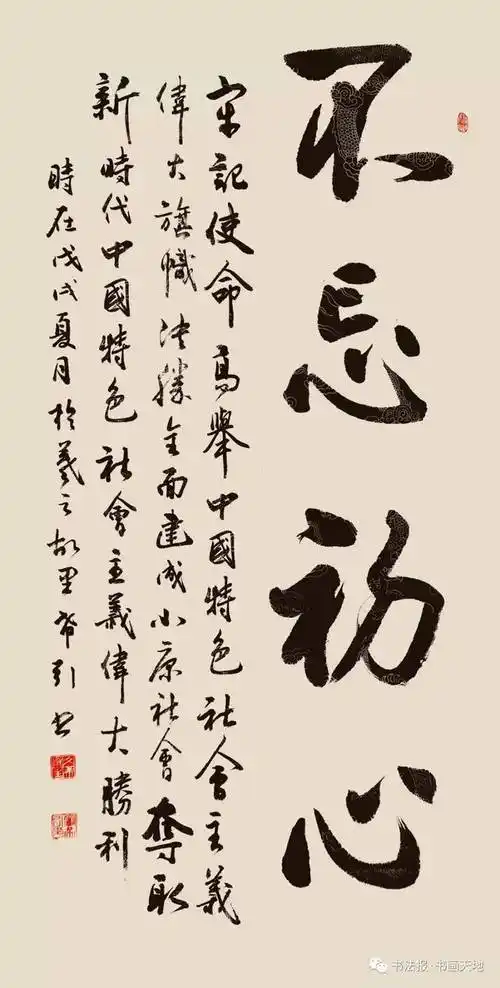 不忘初心
牢記使命高舉中國特色社會主義
偉大旗幟決勝全面建成小康社會奪取
新時代中國特色社會主義偉大勝利
時在戊戌夏月於羲之故里希引書
书法报·书画天地